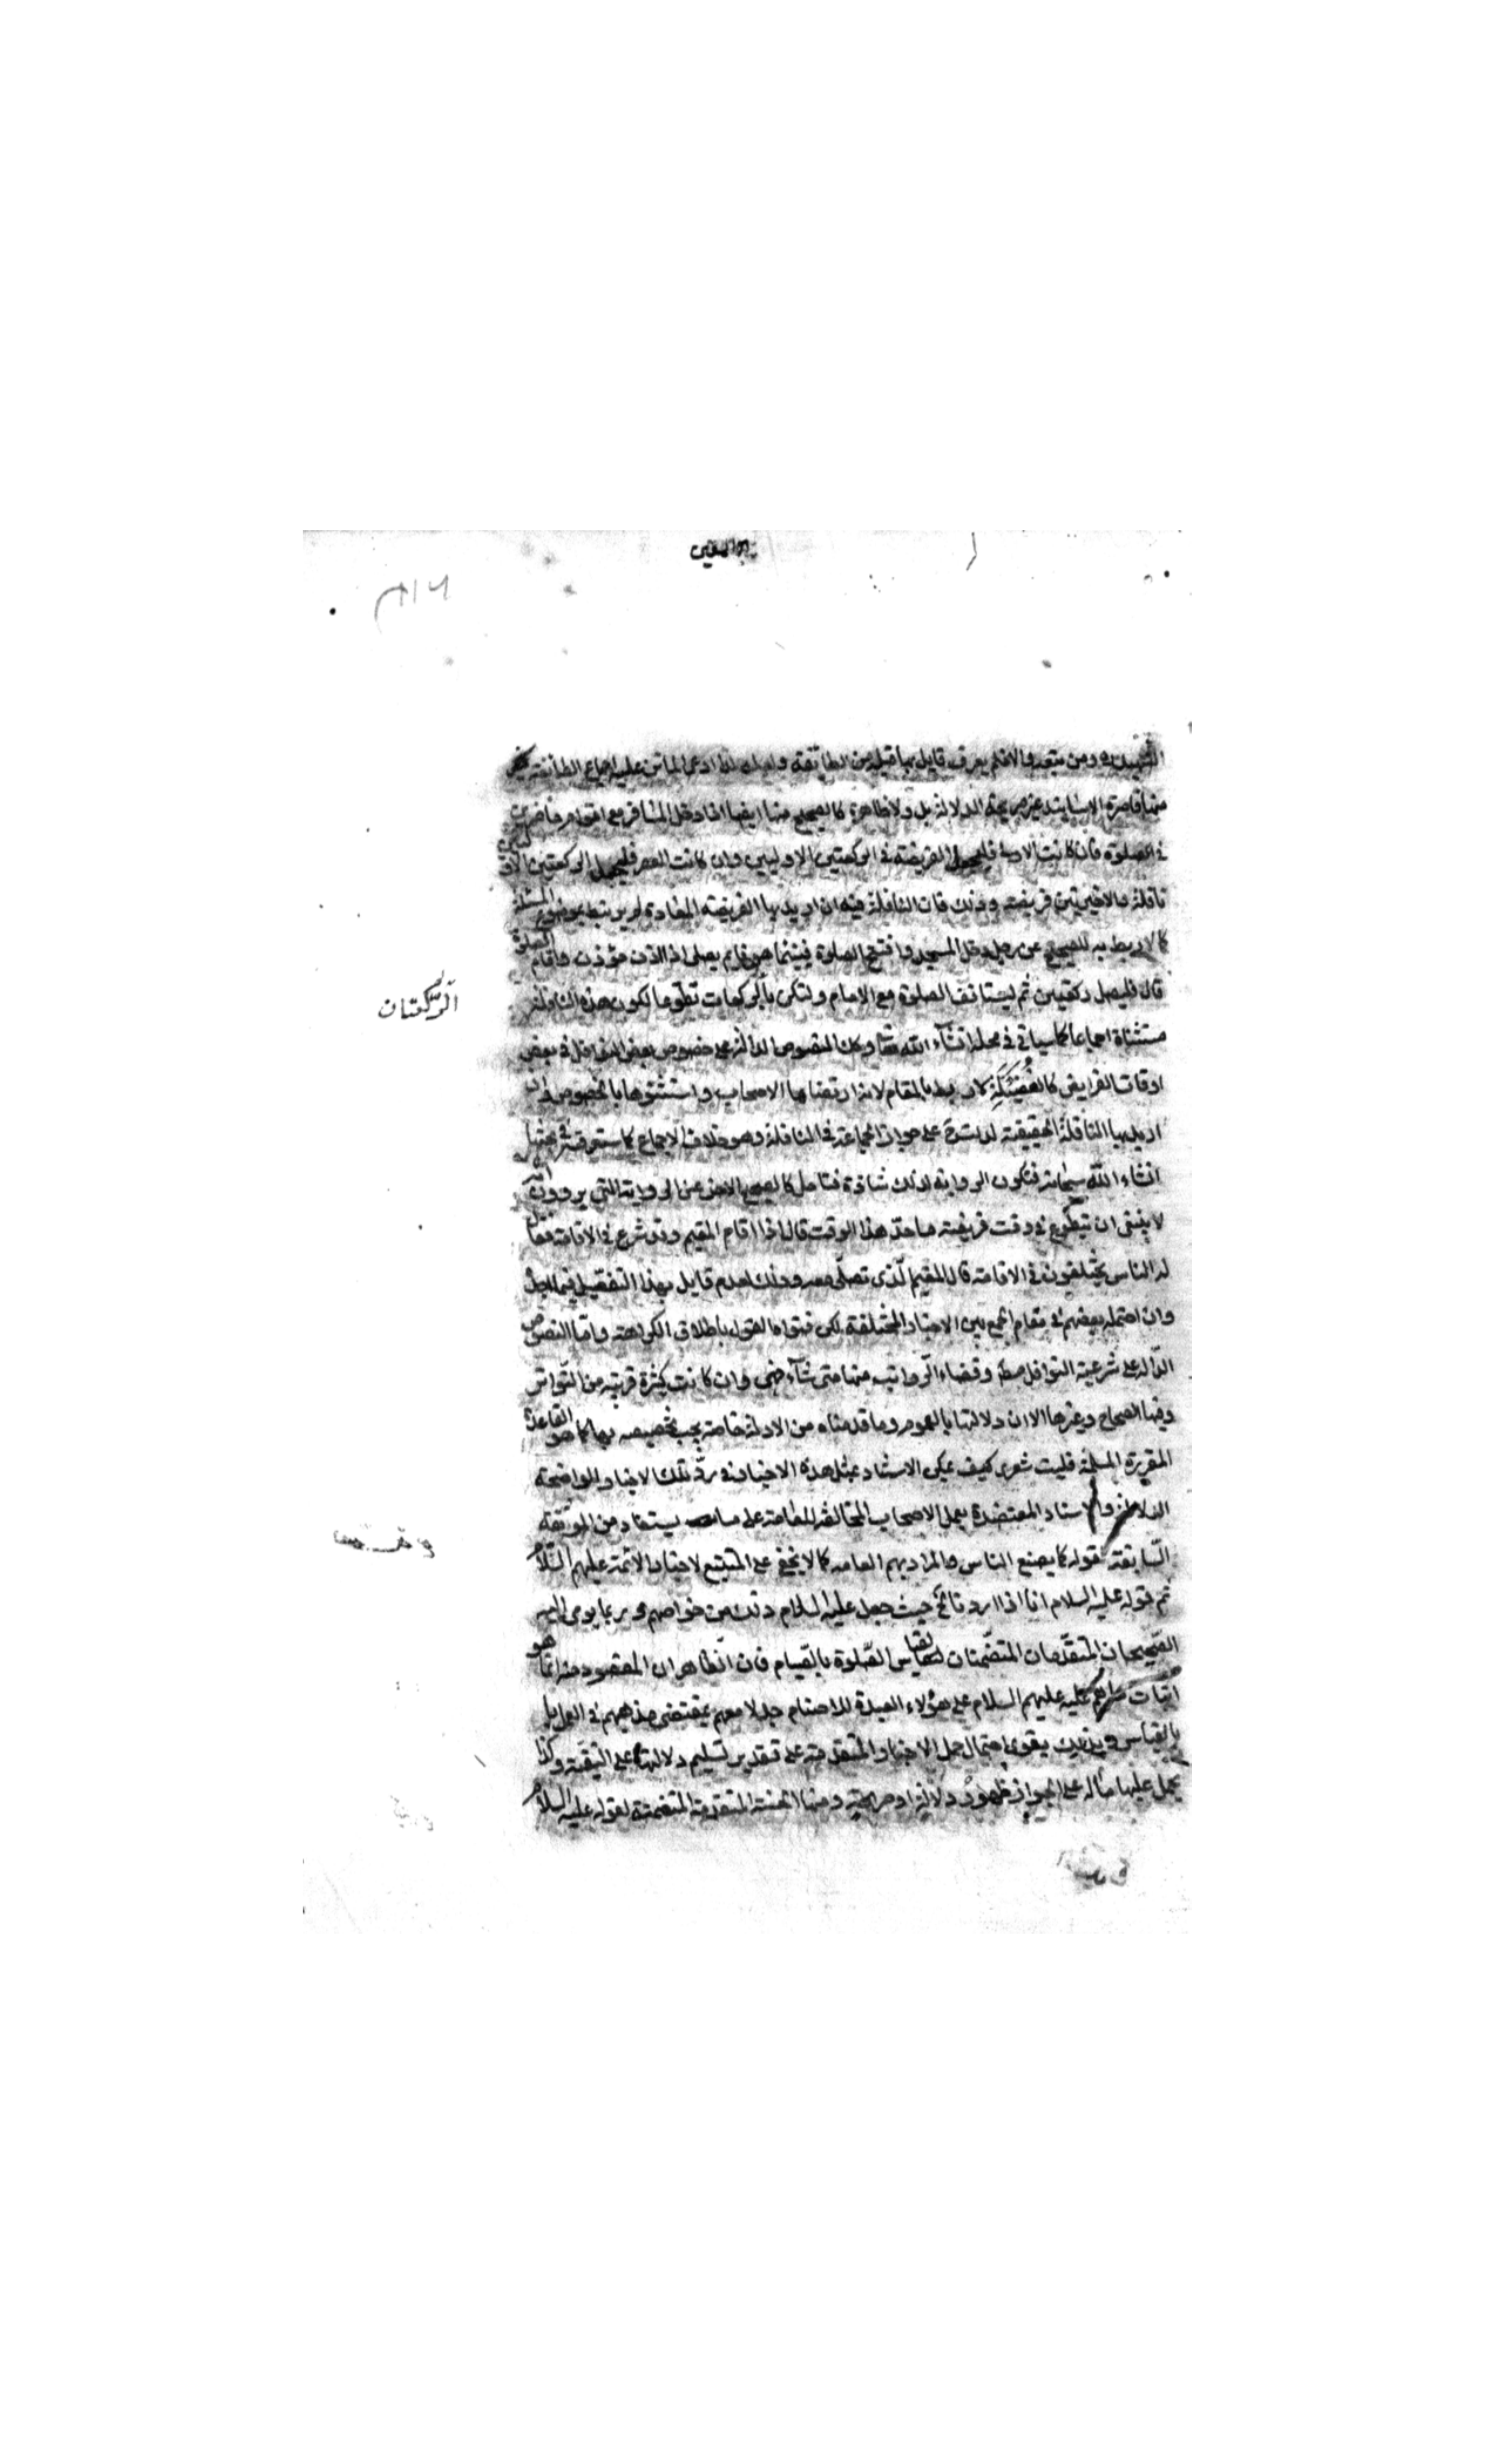 الشهيد ره ومن تبعه والا فلم يعرف قايل بها قبله من الطائفة ولعله لذا ادعى الماتن عليه اجماع الطائفة
منها قاصرة الاسانيد غير صريحة الدلالة بل ولا ظاهرة كالصحيح منها ايضا اذا دخل المسافر مع اقوام حاضرين
في الصلوة فان كانت الاولى فليجعل الفريضة في الركعتين الاوليين وان كانت العصر فليجعل الركعتين الاوليين
نافلة والاخيرتين فريضة وذلك فان النافلة فيه ان اريد بها الفريضة المعادة لم يرتبط بموضوع المسئلة
كما لا يربط به الصحيح عن رجل دخل المسجد وافتتح الصلوة فبينما هو قايم يصلى اذ اذن مؤذن واقام الصلوة
قال فليصل ركعتين ثم ليستانف الصلوة مع الامام ولتكن الركعات تطوعا لكون هذه النافلة
الركعتان
مستثناة اجماعا كما سياتي في محله انشاء الله تعالى وكل النصوص الدالة على خصوص بعض النوافل في بعض
اوقات الفرايض كالغفيلة لا ربط بالمقام لانه ارتضاها الاصحاب واستثنوها بالخصوص وان
اريد بها النافلة الحقيقية لدلت على جواز الجماعة في النافلة وهو خلاف الاجماع كما ستعرفه في بحثها
انشاء الله سبحانه فتكون الرواية لذلك شاذة فتامل كالصحيح الاخر عن الرواية التي يروون انه
لا ينبغي ان يتطوع في وقت فريضة ما حد هذا الوقت قال اذا اقام المقيم وقد شرع في الاقامة فقال
له الناس يختلفون في الاقامة قال المقيم الذى تصلى معه وذلك لعدم قايل بهذا التفصيل فيما اجد
وان احتمله بعضهم في مقام الجمع بين الاخبار المختلفة لكن فتواه القول باطلاق الكراهة واما النصوص
الدالة على شرعية النوافل وقضاء الرواتب منها متى شاء وان كانت كثيرة قريبة من التواتر
وفيها الصحاح وغيرها الا ان دلالتها بالعموم وما قدمناه من الادلة خاصة يجب تخصيصه بها كما هو القاعدة
المقررة المسلمة فليت شعرى كيف يمكن الاستناد بمثل هذه الاخبار في رد تلك الاخبار الواضحة
الدلالة والاسناد المعتضدة بعمل الاصحاب المخالفة للعامة على ما يستفاد من الموثقة
السابقة لقوله كما يصنع الناس والمراد بهم العامه كما لا يخفى على المتتبع لاخبار الائمة عليهم السلام
ثم قوله عليه السلام انا اذا اردنا حيث جعل عليه السلام ذلك من خواصهم وربما يومى اليه
الصحيحان المتقدمان المتضمنان لقياس الصلوة بالصيام فان الظاهر ان المقصود منه انما هو
اثبات عليهم السلام على هؤلاء العبدة للاصنام جدلا معهم بمقتضى مذهبهم في العمل
بالقياس وبذلك يقوى احتمال حمل الاخبار المتقدمة على تقدير تسليم دلالتها على التقية وكذا
يحمل عليها ماله على الجواز ظهور دلالة او صريحة ومنها الحسنة المتقدمة المتضمنة لقوله عليه السلام